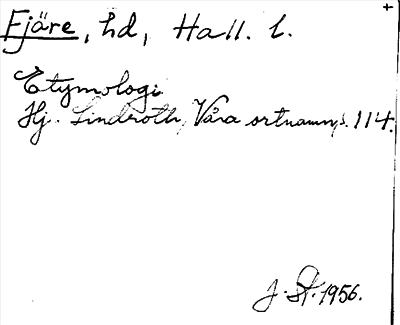 Fjäre, hd, Hall. l.
Etymologi
Hj. Lindroth, Våra ortnamn, s. 114.
J. St. 1956.